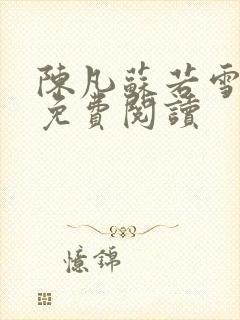 陳凡蘇若雪
免費閱讀
憶錦